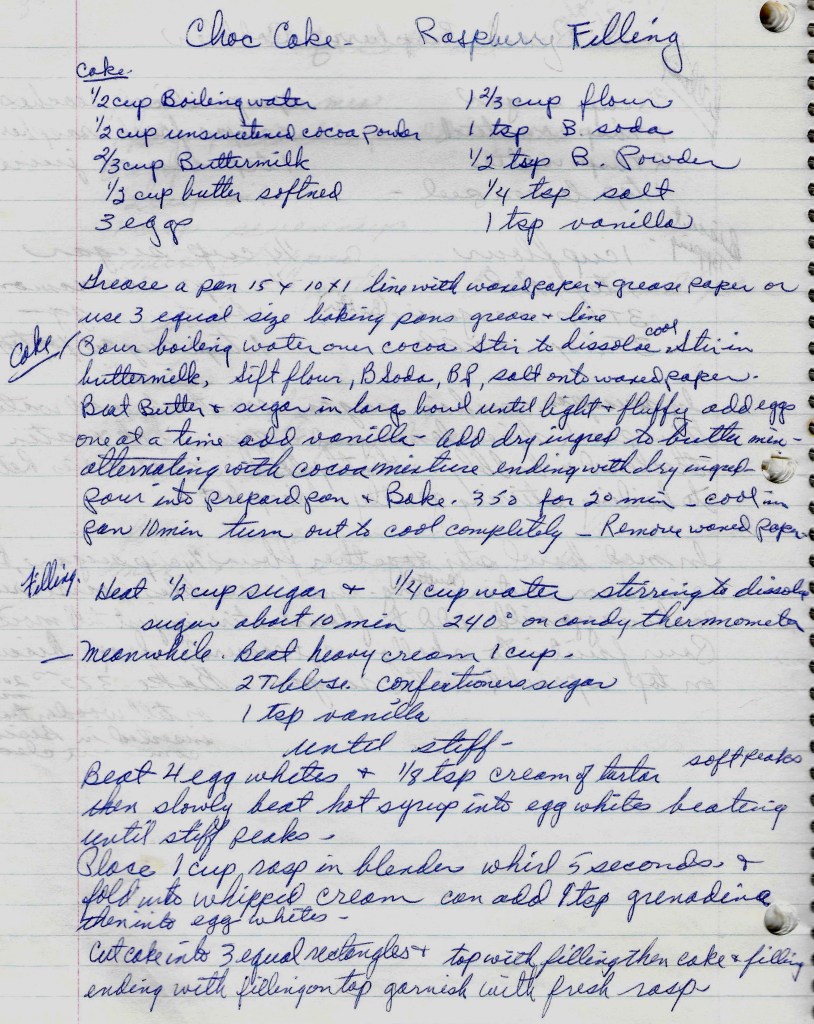 Choc Cake - Raspberry Filling
Cake.
1/2 cup Boiling water 1 2/3 cup flour
1/2 cup unsweetened cocoa powder 1 tsp B. soda
2/3 cup Buttermilk 1/2 tsp B. Powder
1/2 cup butter softned 1/4 tsp salt
3 eggs 1 tsp vanilla
Grease a pan 15 x 10 x 1 line with waxed paper + grease paper or
use 3 equal size baking pans grease + line
Cake / Pour boiling water over cocoa Stir to dissolve cool, Stir in
buttermilk, Sift flour, B Soda, BP, salt onto waxed paper.
Beat Butter + sugar in large bowl until light + fluffy add eggs
one at a time add vanilla - add dry ingred to butter mix -
alternating with cocoa mixture ending with dry ingred -
pour into prepard pan + Bake. 350 for 20 min - cool in
pan 10 min turn out to cool completely - Remove waxed paper
Filling. Heat 1/2 cup sugar + 1/4 cup water stirring to dissolve
sugar about 10 min 240° on candy thermometer
- Meanwhile. Beat heavy cream 1 cup.
2 Tblse. confectioners sugar
1 tsp vanilla
until stiff -
Beat 4 egg whites + 1/8 tsp cream of tartar soft peaks
then slowly beat hot syrup into egg whites beating
until stiff peaks -
Place 1 cup rasp in blender whirl 5 seconds +
fold into whipped cream can add 1 tsp grenadine
then into egg whites -
Cut cake into 3 equal rectangles + top with filling then cake + filling
ending with filling on top garnish with fresh rasp